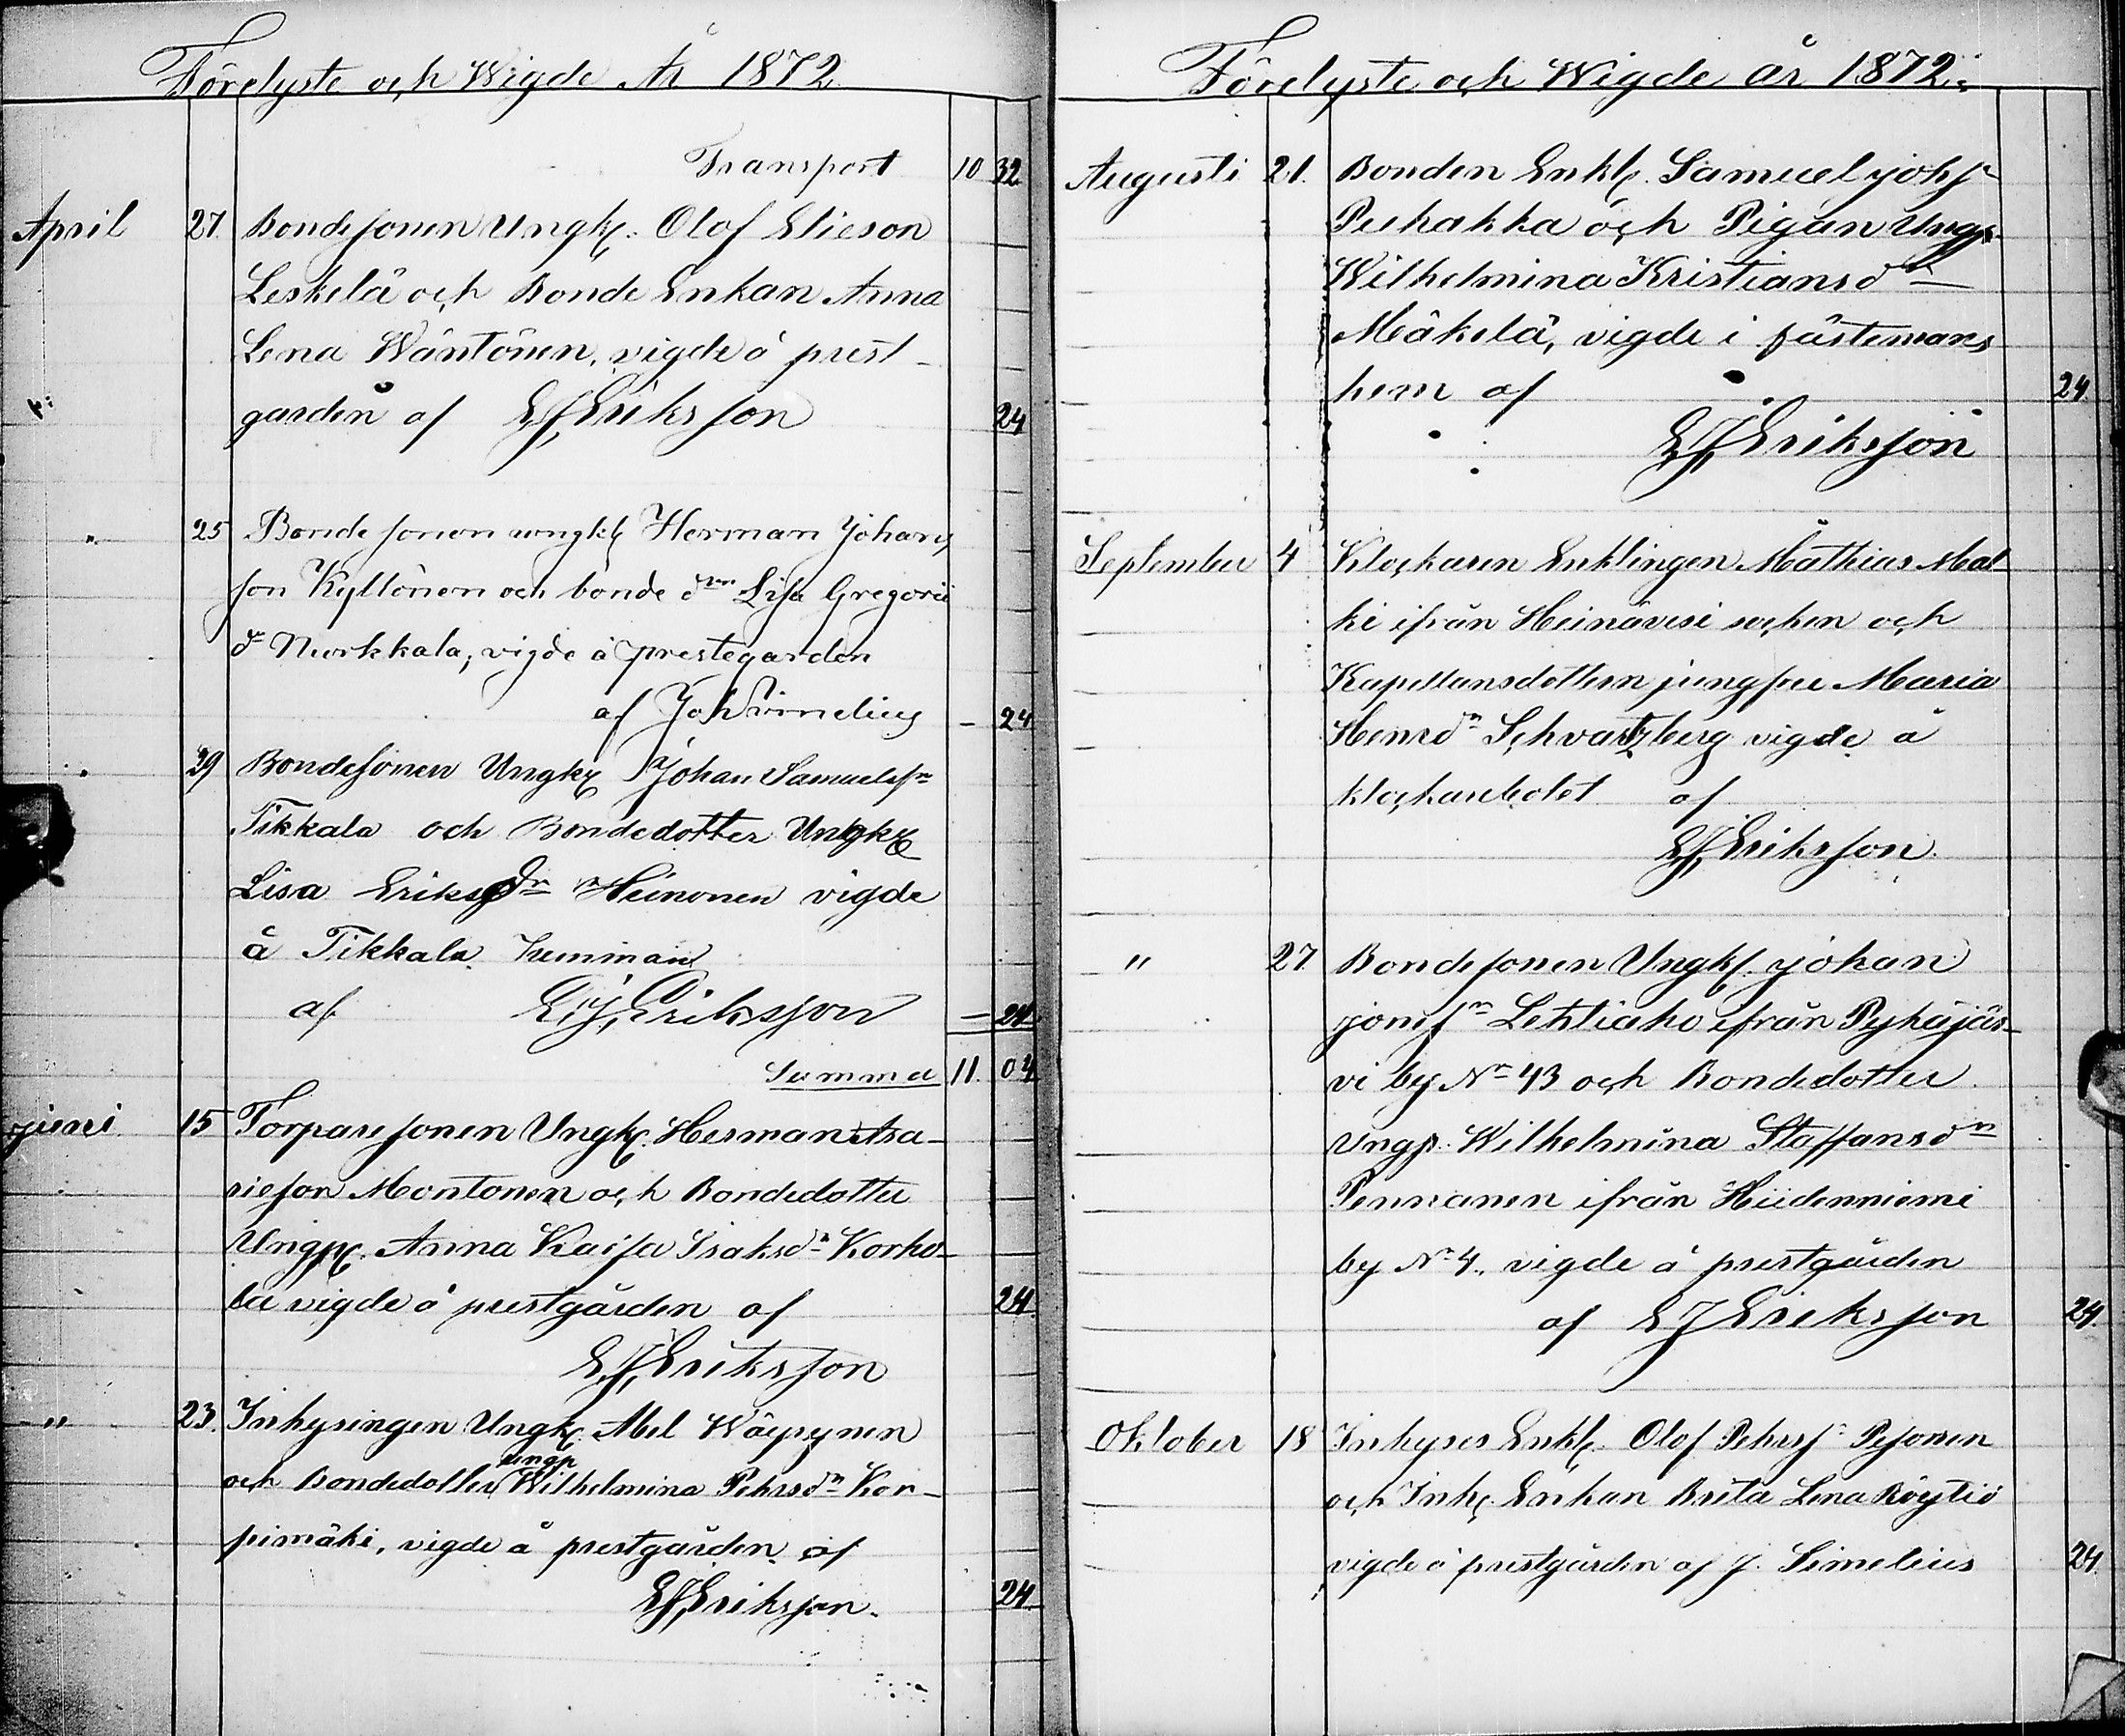 Förelyste och Wigde År 1872.
Transport 10 32
April 27. Bondesonen Ungk. Olof Elieson
Leskelä och Bonde Enkan Anna
Lena Wäntönen, vigde å prest-
garden af EJEriksson 24
" 25 Bondesonen ungk Herman Johans
son Kyllönen och bonde dn Lisa Gregorii
dr Nurkkala, vigde å prestegarden
af Joh Simelius - 24
" 29 Bondesonen Ungk Johan Samuelsn
Tikkala och Bondedotter Ungk
Lisa Eriksdn Heinonen vigde
å Tikkala hemman
af E.J. Eriksson - 24
Summa 11. 04
juni 15 Torparesonen Ungk. Herman Asa-
rieson Montonen och Bondedotter
Ungp. Anna Kaisa Isaksdn Korho-
la vigde å prestgården af 24
EJEriksson
" 23. Inhysingen Ungk. Abel Wäyrynen
och Bondedotter ungp Wilhelmina Pehrsdn Kor-
pimäki, vigde å prestgården af
EJEriksson. 24
Förelyste och Wigde år 1872.
Augusti 21. Bonden Enkl. Samuel johs
Puhakka och Pigan Ungp.
Wilhelmina Kristiansdn
Mäkelä, vigde i fästemans
hem af 24.
EJEriksson
September 4 Klockaren Enklingen Mathias Mal-
ki ifrån Heinävesi socken och
Kapellansdottern jungfru Maria
Hensdn Schvartzberg vigde å
klockarebolet af
EJEriksson.
" 27. Bondesonen Ungk. johan
jonsn Lehtiaho ifrån Pyhäjär-
vi by No 43 och Bondedotter
Ungp. Wilhelmina Staffansdn
Pennanen ifrån Hiidenniemi
by No 4., vigde å prestgården
af EJEriksson 24.
Oktober 18 Inhyses Enkl. Olof Pehrs Pejonen
och Inh. Enkan Brita Lena Röytiö
vigde å prestgården af J. Simelius 24.